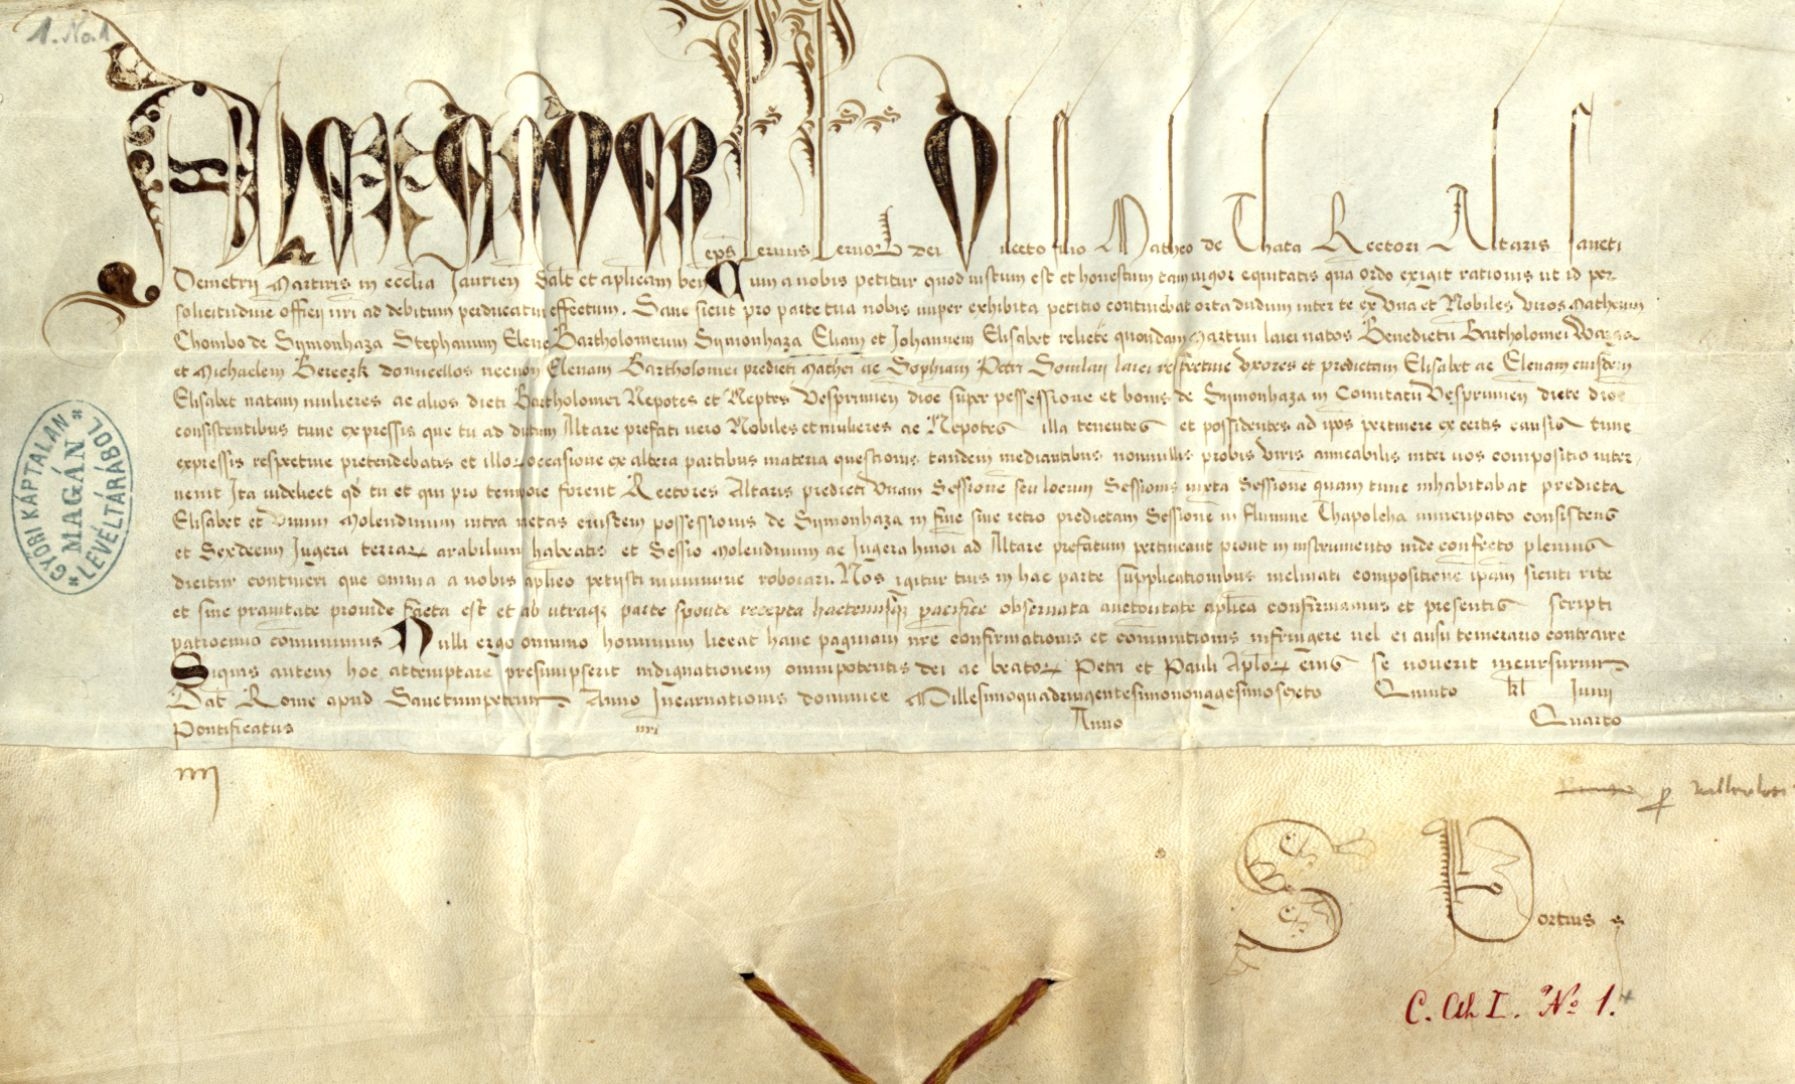 1. No. 1
ALEXANDER eps seruus seruor dei Dilecto filio Matheo de Thata Rectori Altaris sancti
Demetrij Martiris in ecclia Jaurien Salt et aplicam ben Cum a nobis petitur quod iustum est et honestum tam uigor equitatis qua ordo exigit rationis ut id per
solicitudine officij nri ad debitum perducatur effectum. Sane sicut pro parte tua nobis nuper exhibita petitio continebat orta dudum inter te ex Una et Nobiles Viros Matheum
Chombo de Symonhaza Stephanum Elene Bartholomeum Symonhaza Eliam et Johannem Elisabet relicte quondam Martini laici natos Benedictu Bartholomei
et Michaelem Bereczk domicellos necnon Elenam Bartholomei predicti Mathei ac Sophiam Petri Somlay laici respective Uxores et predictam Elisabet ac Elenam eiusdem
Elisabet natam mulieres ac alios dicti Bartholomei Nepotes et Neptes Vesprimien dioc super possessione et bonis de Symonhaza in Comitatu Vesprimien dicte dioc
consistentibus tunc expressis que tu ad dictum Altare prefati uero Nobiles et mulieres ac Nepotes illa tenentes et possidentes ad ipos pertinere ex certis causis tunc
expressis respective pretendebatis et illor occasione ex altera partibus materia questionis tandem mediantibus nonnullis probis Viris amicabilis inter uos compositio inter,
uenit Ita uidelicet qd tu et qui pro tempore forent Rectores Altaris predicti Unam Sessione seu locum Sessionis iuxta Sessione quam tunc inhabitabat predicta
Elisabet et Unum Molendinum intra metas eiusdem possessionis de Symonhaza in fine siue retro predictam Sessione in flumine Thapolcha nuncupato consistens
et Sexdecim Jugera terrar arabilium habeatis et Sessio Molendinum ac Jugera hmoi ad Altare prefatum pertineant prout in instrumento inde confecto plenius
dicitur contineri que omnia a nobis aplico petijsti munimine roborari. Nos igitur tuis in hac parte supplicationibus inclinati compositione ipam sicuti rite
et sine prauitate prouide facta est et ab utraq parte sponte recepta hactenusq pacifice obseruata auctoritate aplica confirmamus et presentis scripti
patrocinio comunimus Nulli ergo omnino hominum liceat hanc paginam nre confirmationis et comunitionis infringere uel ei ausu temerario contraire
Siquis autem hoc attemptare presumpserit indignationem omnipotentis dei ac beator Petri et Pauli Aplor eius se nouerit incursurum
Dat Rome apud Sanctumpetrum Anno Incarnationis dominice Millesimoquadringentesimononagesimosexto Quinto kl Junij
Pontificatus nri Anno Quarto
GYŐRI KÁPTALAN
MAGÁN
LEVÉLTÁRÁBÓL
iiij
S Portius
C. Cth I. No 1.